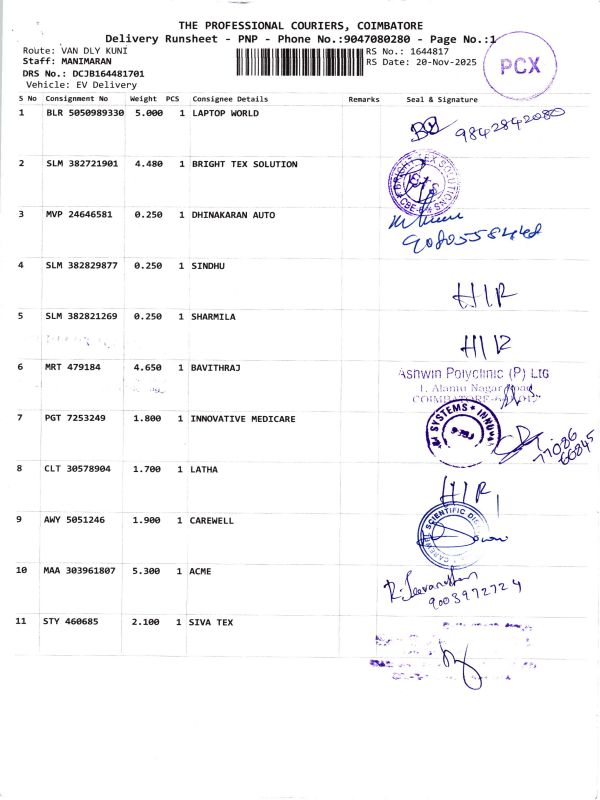 THE PROFESSIONAL COURIERS, COIMBATORE
Delivery Runsheet - PNP - Phone No.:9047080280 - Page No.:1
Route: VAN DLY KUNI
RS No.: 1644817
Staff: MANIMARAN
RS Date: 20-Nov-2025
DRS No.: DCJB164481701
Vehicle: EV Delivery
PCX
S No Consignment No Weight PCS Consignee Details Remarks Seal & Signature
1 BLR 5050989330 5.000 1 LAPTOP WORLD
9842842080
2 SLM 382721901 4.480 1 BRIGHT TEX SOLUTION
BRIGHT TEX SOLUTIONS
CBE-
3 MVP 24646581 0.250 1 DHINAKARAN AUTO
4 SLM 382829877 0.250 1 SINDHU
HIR
5 SLM 382821269 0.250 1 SHARMILA
HIR
6 MRT 479184 4.650 1 BAVITHRAJ
Ashwin Polyclinic (P) Ltd
1, Alamu Nagar
COIMBATORE-
7 PGT 7253249 1.800 1 INNOVATIVE MEDICARE
SYSTEMS * INNO
77086
66845
8 CLT 30578904 1.700 1 LATHA
HIR
9 AWY 5051246 1.900 1 CAREWELL
CAREWELL SCIENTIFIC
10 MAA 303961807 5.300 1 ACME
9003972724
11 STY 460685 2.100 1 SIVA TEX